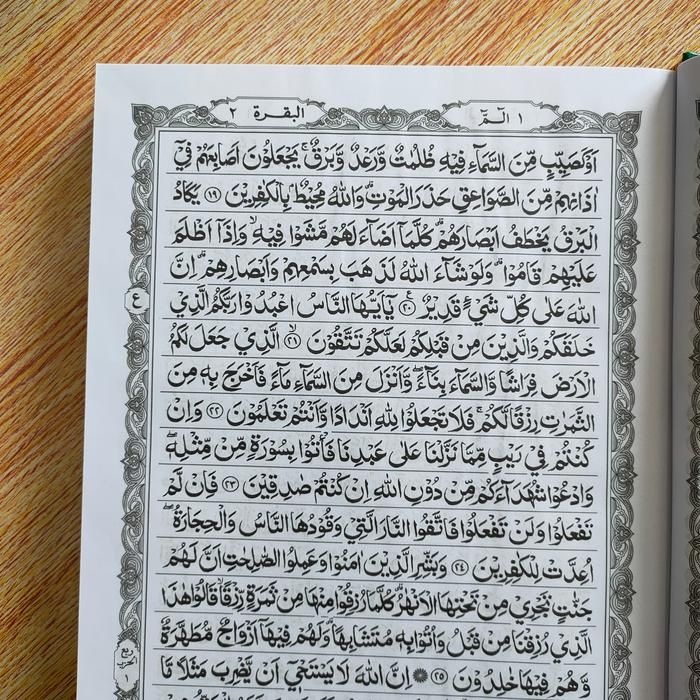 ١ الٓمّٓ
البقرة ٢
اَوۡ كَصَيِّبٍ مِّنَ السَّمَآءِ فِيۡهِ ظُلُمٰتٌ وَّرَعۡدٌ وَّبَرۡقٌ‌ ۚ يَجۡعَلُوۡنَ اَصَابِعَهُمۡ فِىۡٓ
اٰذَانِهِمۡ مِّنَ الصَّوَاعِقِ حَذَرَ الۡمَوۡتِ‌ؕ وَاللّٰهُ مُحِيۡطٌۢ بِالۡكٰفِرِيۡنَ ﴿۱۹﴾ يَكَادُ
الۡبَرۡقُ يَخۡطَفُ اَبۡصَارَهُمۡ‌ؕ كُلَّمَآ اَضَآءَ لَهُمۡ مَّشَوۡا فِيۡهِۙ وَاِذَآ اَظۡلَمَ
عَلَيۡهِمۡ قَامُوۡا‌ؕ وَلَوۡ شَآءَ اللّٰهُ لَذَهَبَ بِسَمۡعِهِمۡ وَاَبۡصَارِهِمۡ‌ؕ اِنَّ
اللّٰهَ عَلٰى كُلِّ شَىۡءٍ قَدِيۡرٌ ﴿۲۰﴾ يٰٓاَيُّهَا النَّاسُ اعۡبُدُوۡا رَبَّكُمُ الَّذِىۡ
ع
خَلَقَكُمۡ وَالَّذِيۡنَ مِنۡ قَبۡلِكُمۡ لَعَلَّكُمۡ تَتَّقُوۡنَ ۙ‏ ﴿۲۱﴾ الَّذِىۡ جَعَلَ لَكُمُ
الۡاَرۡضَ فِرَاشًا وَّالسَّمَآءَ بِنَآءً وَّاَنۡزَلَ مِنَ السَّمَآءِ مَآءً فَاَخۡرَجَ بِهٖ مِنَ
الثَّمَرٰتِ رِزۡقًا لَّكُمۡ‌ۚ فَلَا تَجۡعَلُوۡا لِلّٰهِ اَنۡدَادًا وَّاَنۡتُمۡ تَعۡلَمُوۡنَ ﴿۲۲﴾ وَاِنۡ
کُنۡتُمۡ فِىۡ رَيۡبٍ مِّمَّا نَزَّلۡنَا عَلٰى عَبۡدِنَا فَاۡتُوۡا بِسُوۡرَةٍ مِّنۡ مِّثۡلِهٖ
وَادۡعُوۡا شُهَدَآءَكُمۡ مِّنۡ دُوۡنِ اللّٰهِ اِنۡ كُنۡتُمۡ صٰدِقِيۡنَ ﴿۲۳﴾ فَاِنۡ لَّمۡ
تَفۡعَلُوۡا وَلَنۡ تَفۡعَلُوۡا فَاتَّقُوا النَّارَ الَّتِىۡ وَقُوۡدُهَا النَّاسُ وَالۡحِجَارَةُ ۖۚ
اُعِدَّتۡ لِلۡكٰفِرِيۡنَ ﴿۲۴﴾ وَبَشِّرِ الَّذِيۡنَ اٰمَنُوۡا وَعَمِلُوا الصّٰلِحٰتِ اَنَّ لَهُمۡ
جَنّٰتٍ تَجۡرِىۡ مِنۡ تَحۡتِهَا الۡاَنۡهٰرُ‌ؕ كُلَّمَا رُزِقُوۡا مِنۡهَا مِنۡ ثَمَرَةٍ رِّزۡقًا‌ ۙ قَالُوۡا هٰذَا
الَّذِىۡ رُزِقۡنَا مِنۡ قَبۡلُ وَاُتُوۡا بِهٖ مُتَشَابِهًا‌ؕ وَلَهُمۡ فِيۡهَآ اَزۡوَاجٌ مُّطَهَّرَةٌ
وَّهُمۡ فِيۡهَا خٰلِدُوۡنَ ﴿۲۵﴾ ۞ اِنَّ اللّٰهَ لَا يَسۡتَحۡىٖۤ اَنۡ يَّضۡرِبَ مَثَلًا مَّا
ربع
الحزب
١